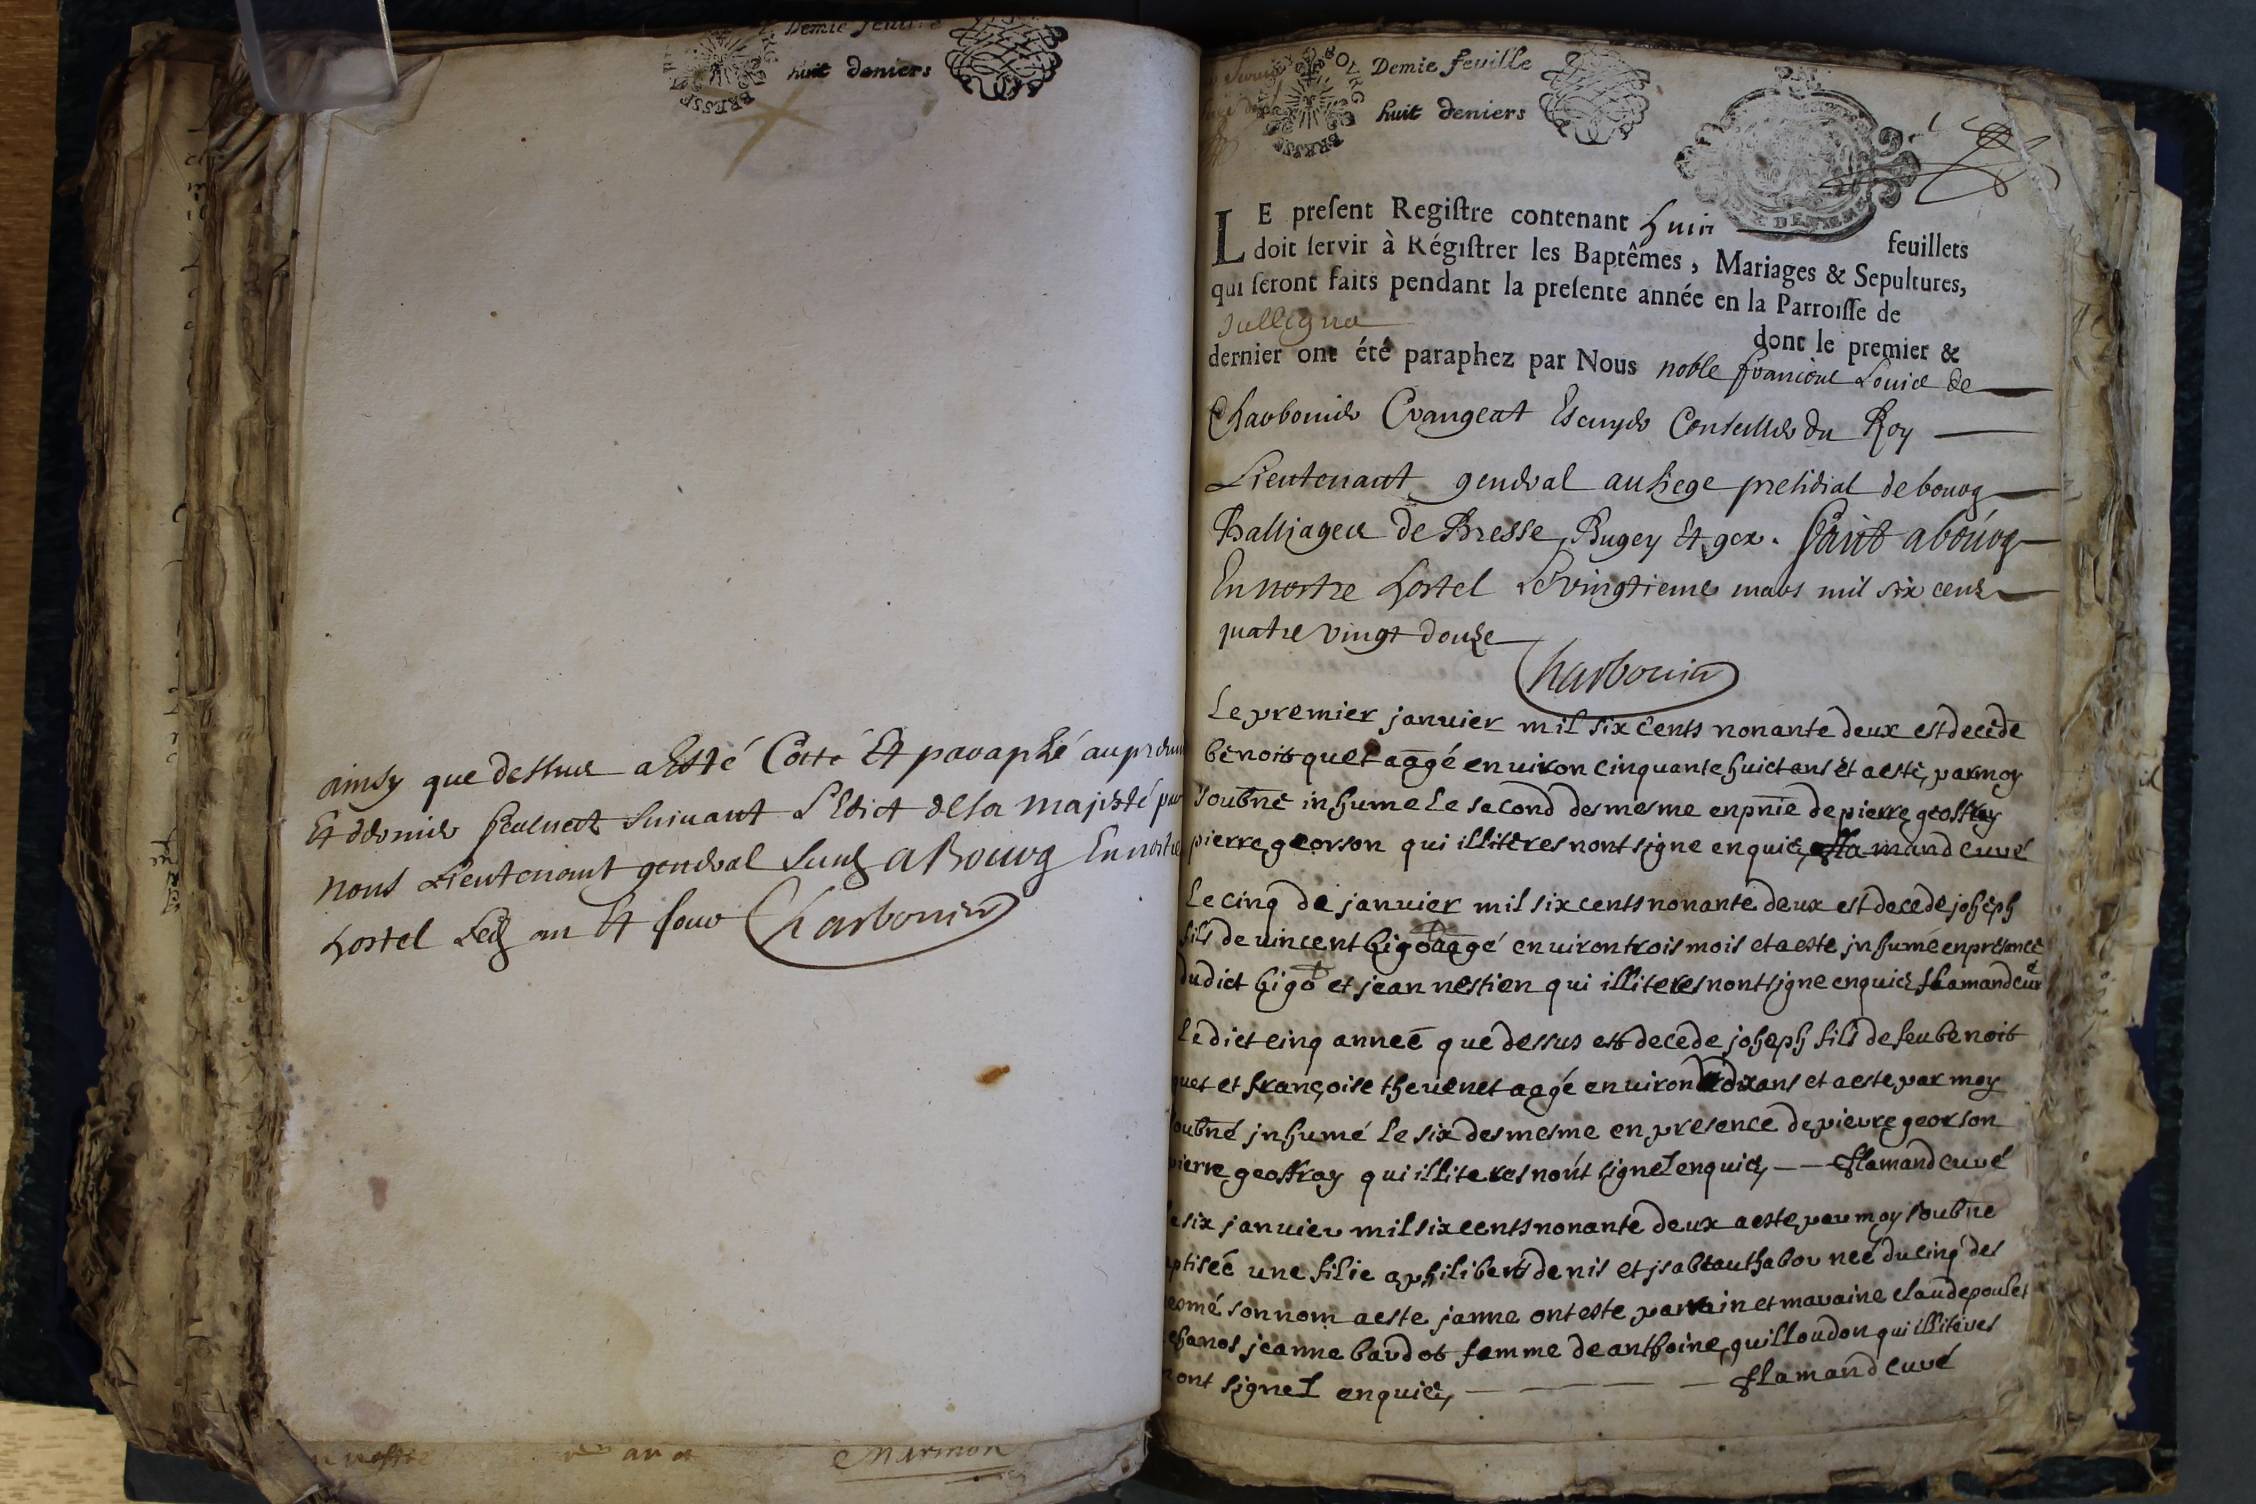 Demie feuille
huit deniers
BRESSE
ainsy que dessus a Esté Cotté Et paraphé au premier
Et dernier feuillet suivant L'Edict de sa majesté par
nous Lieutenant general susd A Bourg En nostre
hostel Led an Et jour Charbonier
Marmon
BOURG
BRESSE
Demie feuille
huit deniers
LE present Registre contenant huit feuillets
doit servir à Régistrer les Baptêmes, Mariages & Sepultures,
qui seront faits pendant la presente année en la Parroisse de
Sulligna dont le premier &
dernier ont été paraphez par Nous noble francois Louis de
Charbonier Crangeat Escuyer Conseiller du Roy
Lieutenant general au siege presidial de bourg
Balliages de Bresse, Bugey Et gex. Fait a bourg
En nostre hostel Le vingtieme mars mil six cens
quatre vingt douze
Charbonier
Le premier janvier mil six cents nonante deux est decede
benoit quet aagé enuiron cinquante huict ans et a esté par moy
soubné inhume le second des mesme en pnie de pierre geoffray
pierre georson qui illiteres nont signe enquis flamand curé
Le cinq de janvier mil six cents nonante deux est decede joseph
fils de vincent bigot aagé enuiron trois mois et a este inhumé en presance
dudict bigot et jean nestien qui illiteres nont signe enquis flamand curé
Le dict cinq anneé que dessus est decede joseph fils de feu benoit
quet et françoise thevenet aagé enuiron dix ans et a este par moy
soubné inhumé le six des mesme en presence de pierre georson
pierre geoffray qui illiteres nont signe enquis — — flamand curé
Le six janvier mil six cents nonante deux a este par moy soubne
baptiseé une filie a philibert denis et isabeau thabou neé du cinq des
mesmé son nom a este janne ont este parrain et maraine claude poulet
chanos jeanne baudot femme de anthoine guilloudon qui illiteres
nont signe enquis, — — — — flamand curé